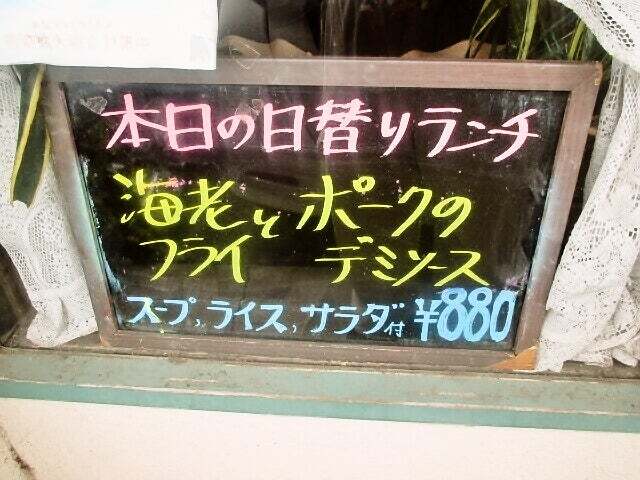 本日の日替りランチ
海老と ポークの
フライ デミソース
スープ、ライス、サラダ付 ¥880